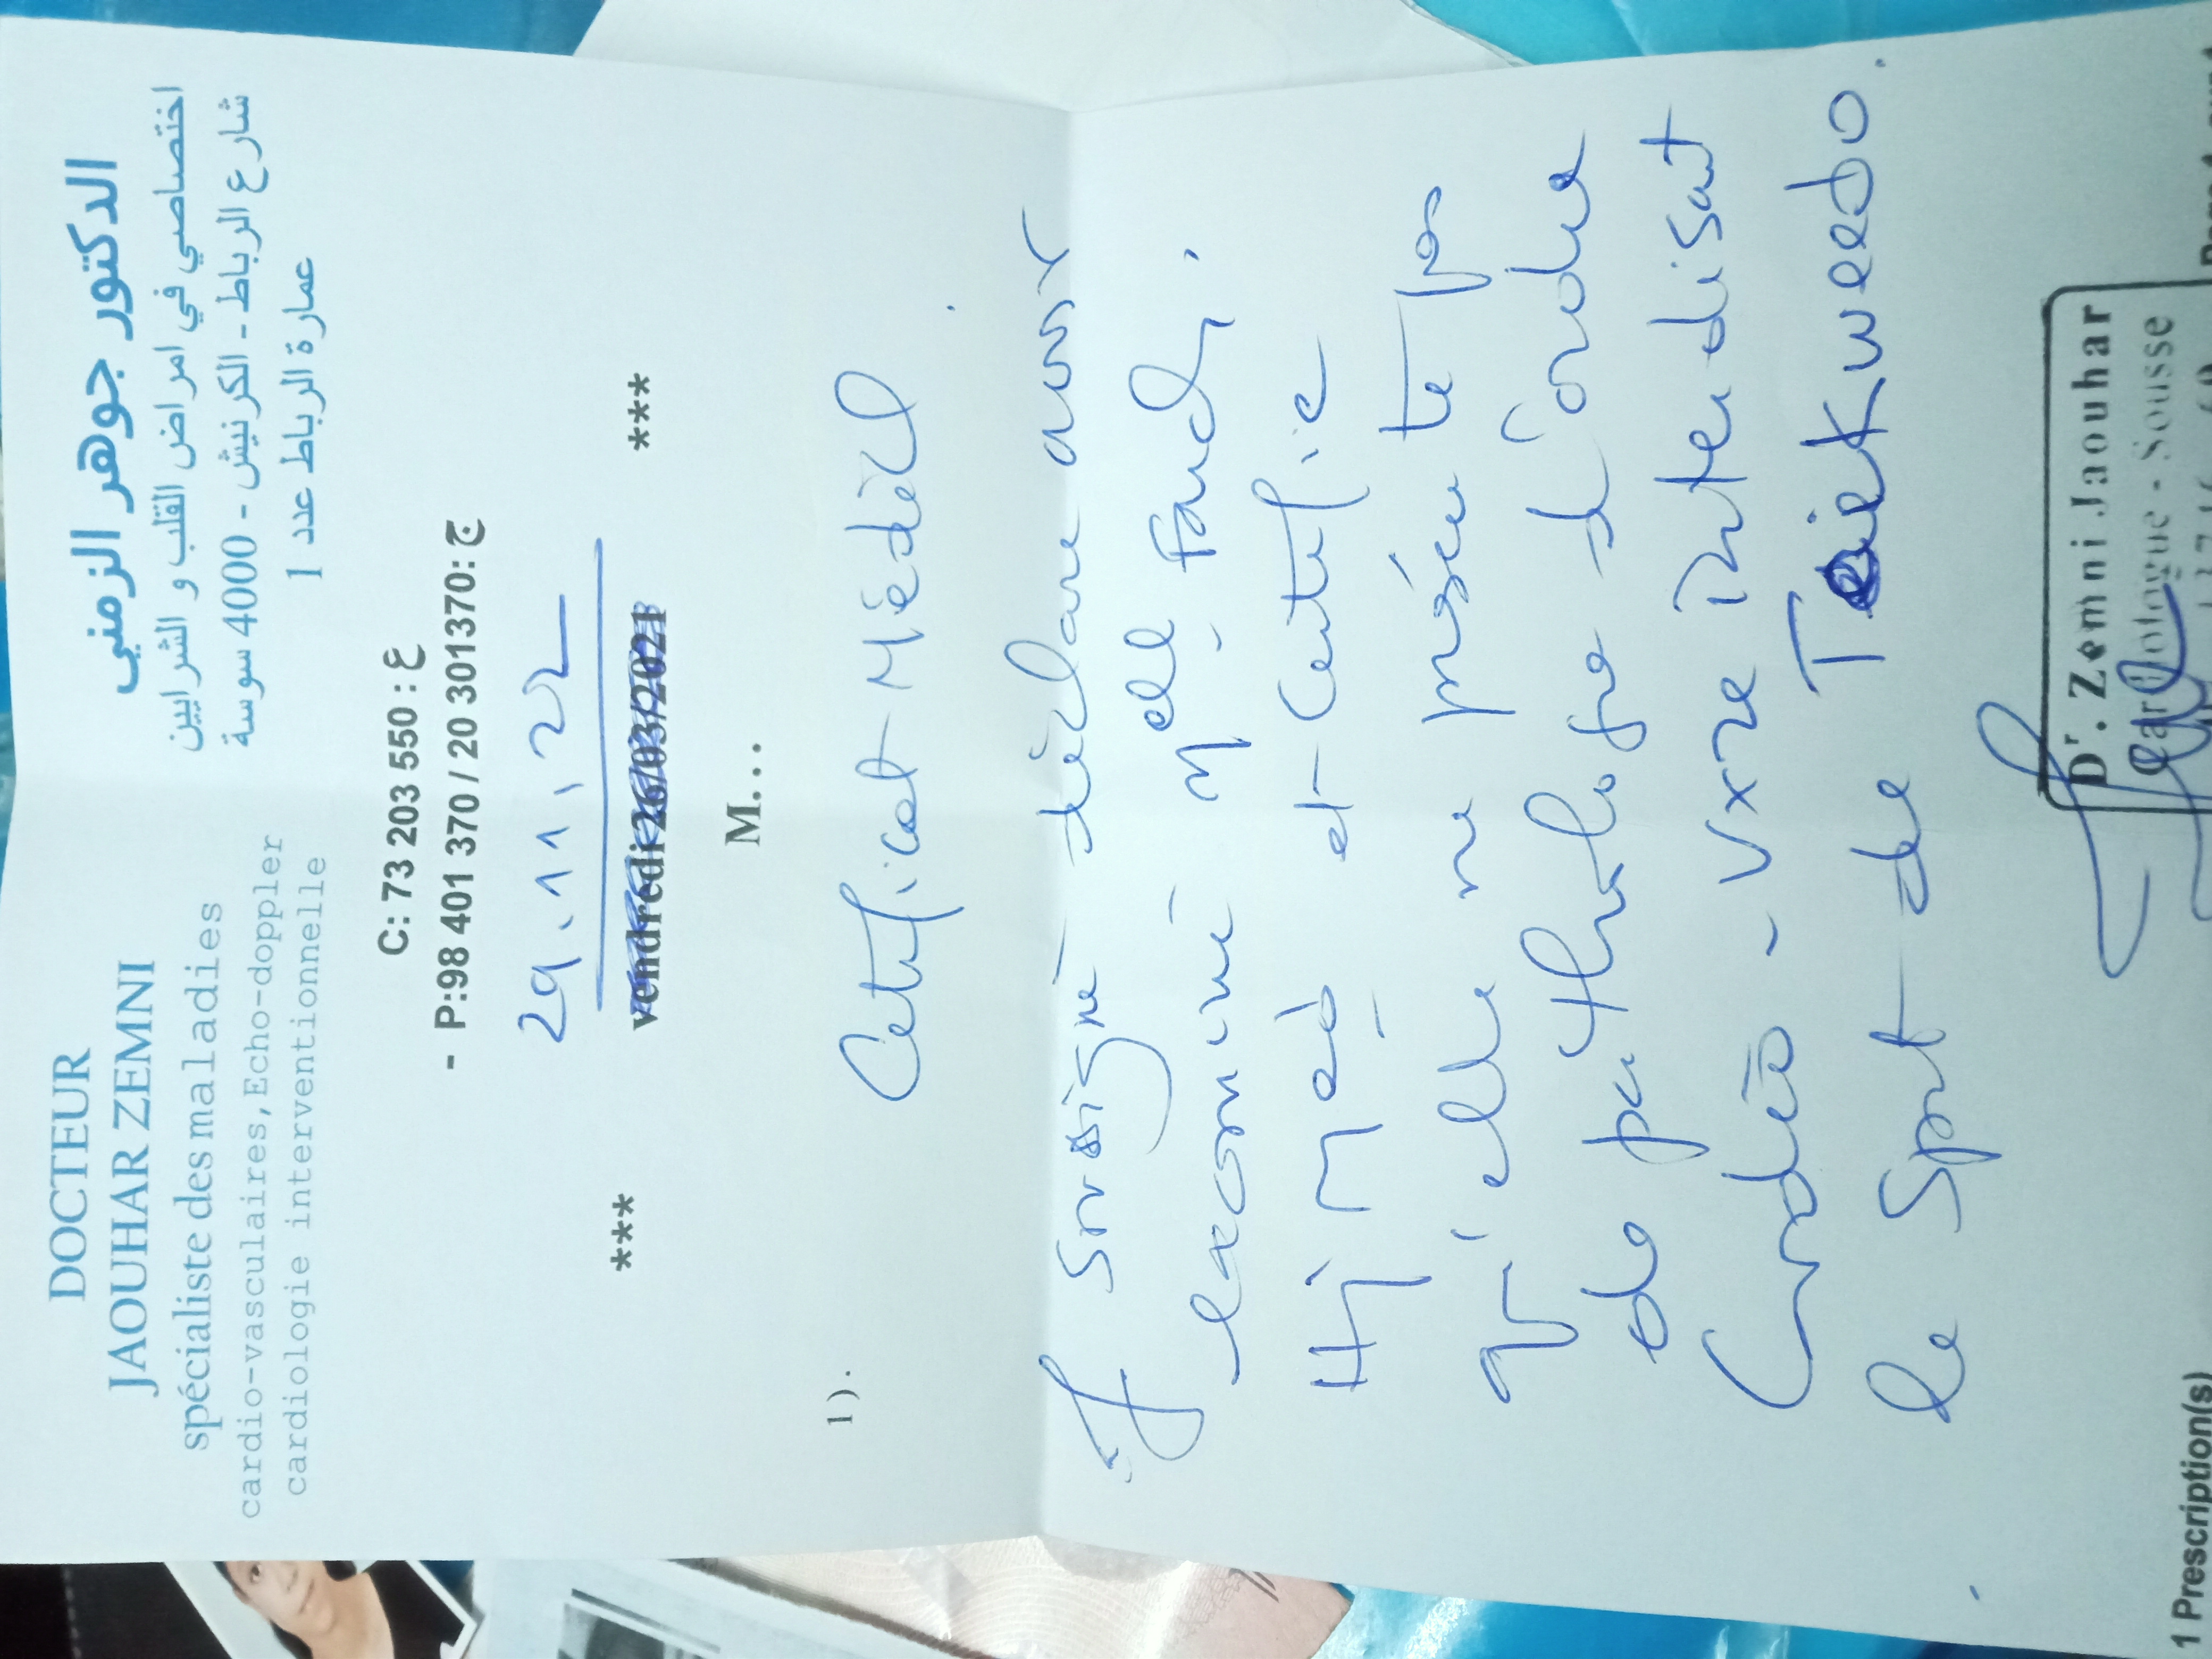 DOCTEUR
JAOUHAR ZEMNI
spécialiste des maladies
cardio-vasculaires,Echo-doppler
cardiologie interventionnelle
الدكتور جوهر الزمني
اختصاصي في امراض القلب و الشرايين
شارع الرباط - الكرنيش - 4000 سوسة
عمارة الرباط عدد 1
C: 73 203 550 : ع
- P:98 401 370 / 20 301370: ج
29.11.22
*** vendredi 26/03/2021 ***
M...
1).
Certificat Médical
Je soussigné déclare avoir
examiné Melle Fandi
et Certifie
qu'elle ne présente pas
de pathologie d'ordre
Cardio-vxre interdisant
le Sport de Taekweedo.
Dr. Zemni Jaouhar
Cardiologue - Sousse
1 Prescription(s)